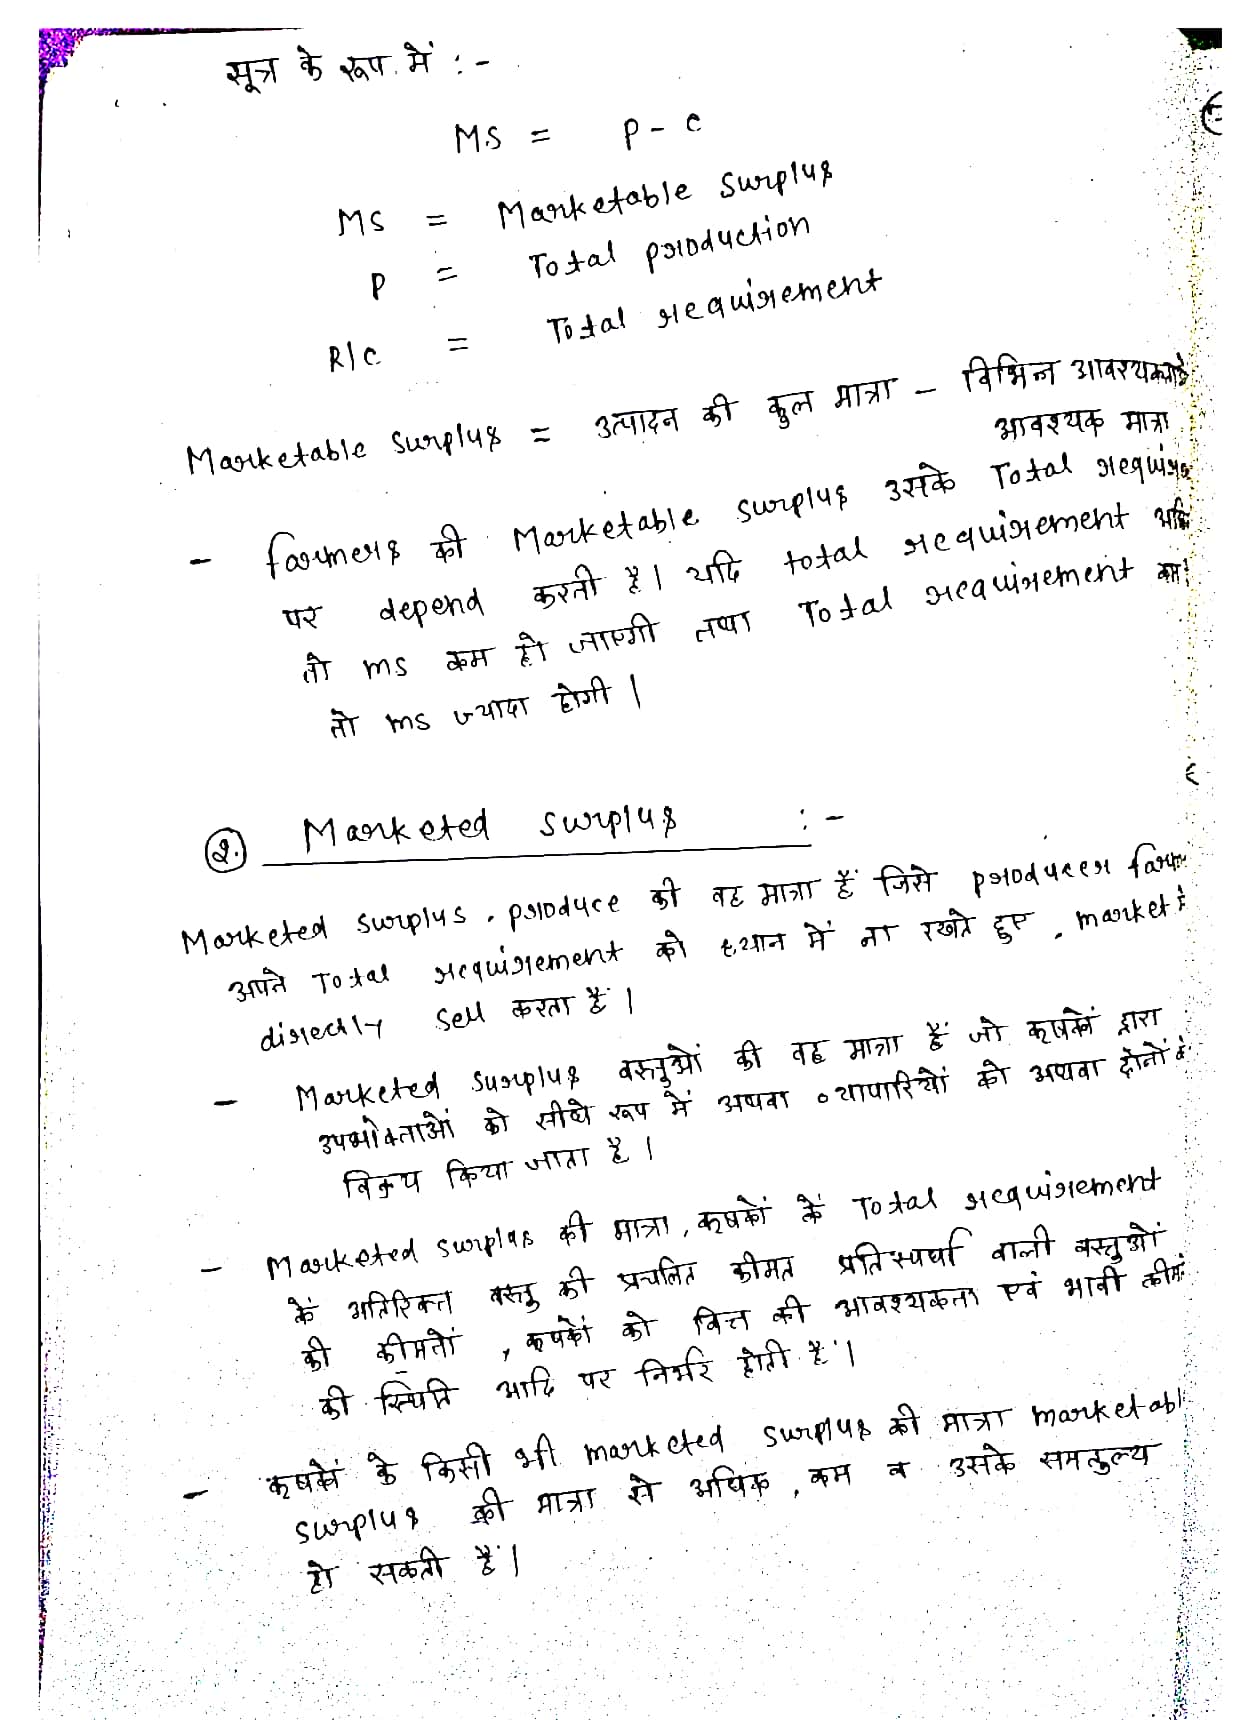 सूत्र के रूप में :-
MS = P - C
MS = Marketable Surplus
P = Total production
R/C = Total requirement
Marketable Surplus = उत्पादन की कुल मात्रा - विभिन्न
आवश्यक मात्रा
- farmers की Marketable Surplus उसके Total
पर depend करती है। यदि total requirement
तो ms कम हो जाएगी तथा Total requirement
तो ms ज्यादा होगी।
2. Marketed Surplus :-
Marketed Surplus, produce की वह मात्रा हैं जिसे producer
अपने Total requirement को ध्यान में ना रखते हुए, market
directly sell करता हैं।
- Marketed Surplus वस्तुओं की वह मात्रा हैं जो कृषकों द्वारा
उपभोक्ताओं को सीधे रूप में अथवा व्यापारियों को अथवा दोनों
विक्रय किया जाता है।
- Marketed surplus की मात्रा, कृषकों कें Total requirement
कें अतिरिक्त वस्तु की प्रचलित कीमत प्रतिस्पर्धा वाली वस्तुओं
की कीमतों, कृषकों को वित्त की आवश्यकता एवं भावी
की स्थिति आदि पर निर्भर होती है।
- कृषकों के किसी भी marketed surplus की मात्रा
surplus की मात्रा से अधिक, कम व उसके समतुल्य
हो सकती हैं।